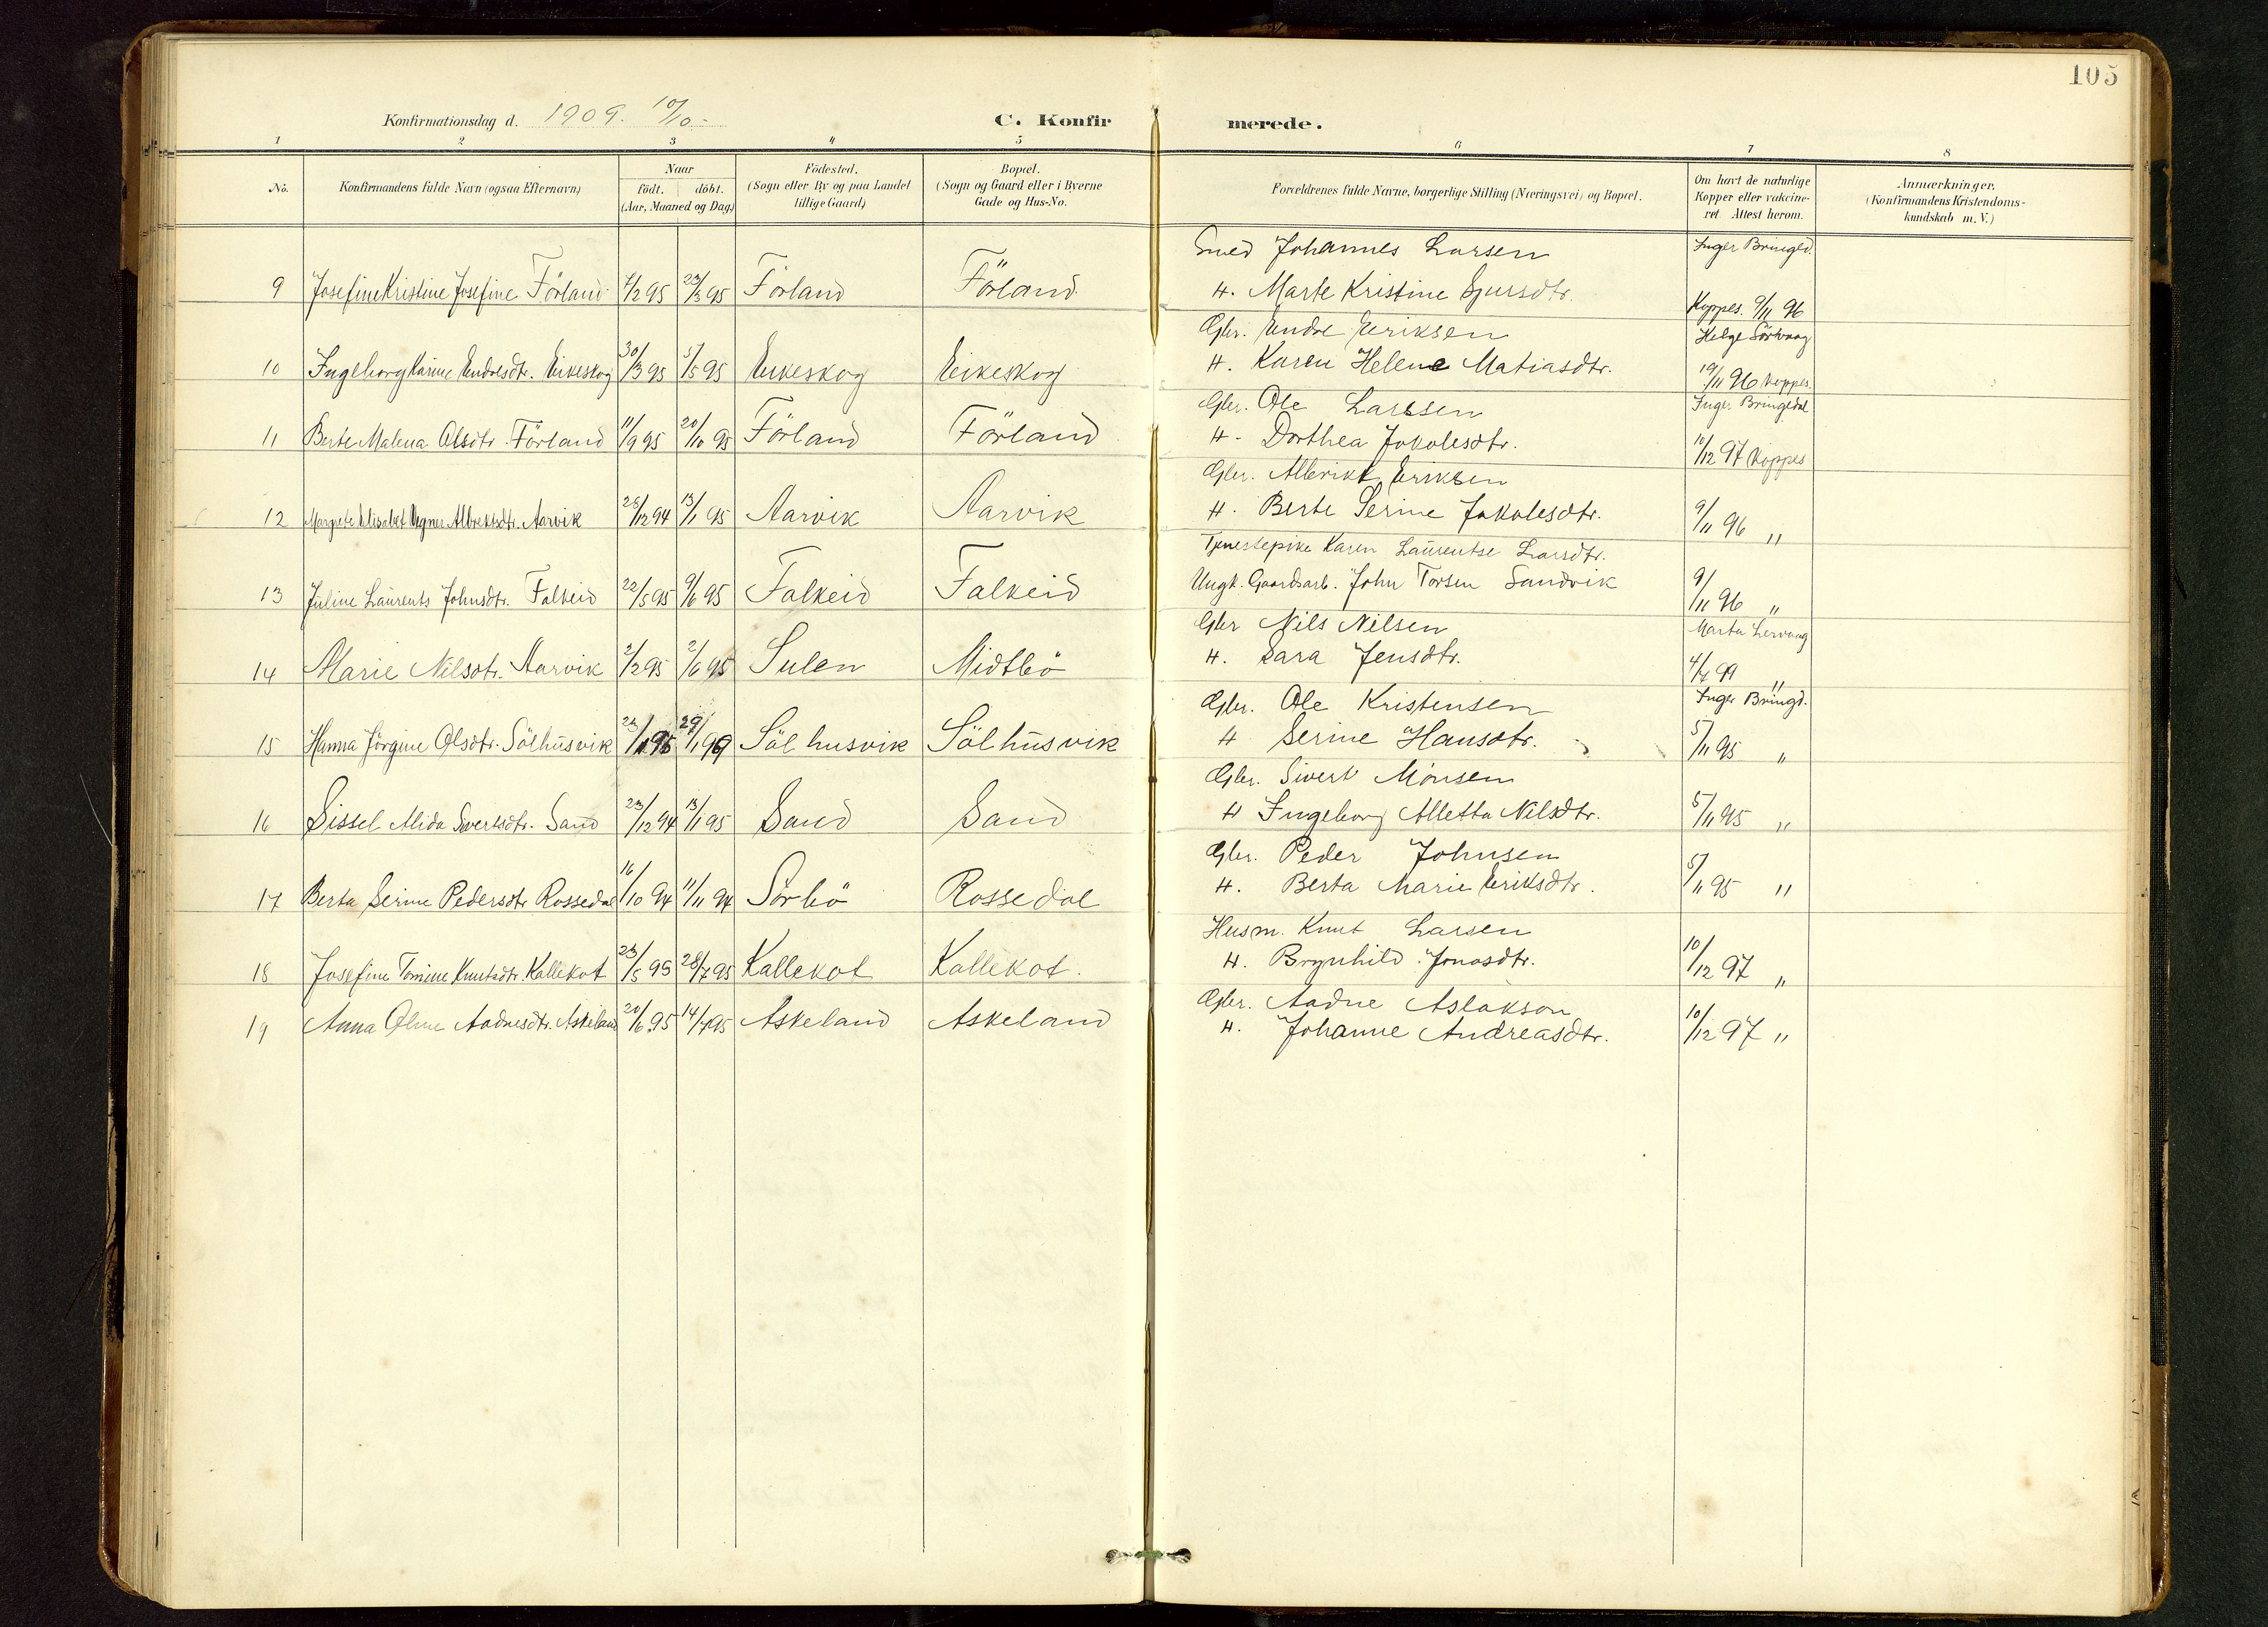 105
Konfirmationsdag d. 1909. 10/10.
C. Konfirmerede.
1 2 3 4 5 6 7 8
No.
Konfirmandens fulde Navn (ogsaa Efternavn)
Naar
födt. döbt.
(Aar, Maaned og Dag.)
Födested.
(Sogn eller By og paa Landet
tillige Gaard)
Bopæl.
(Sogn og Gaard eller i Byerne
Gade og Hus-No.
Forældrenes fulde Navne, borgerlige Stilling (Næringsvei) og Bopæl.
Om havt de naturlige
Kopper eller vakcine-
ret. Attest herom.
Anmærkninger.
(Konfirmandens Kristendoms-
kundskab m. V.)
Smed Johannes Larsen Inger Bringed.
9 Josefine Kristine Josefine Förland 4/2 95 23/3 95 Förland Förland H. Marte Kristine Sjursdtr. Koppes. 9/11 96
Gbr. Endre Eeriksen Helge Sörvaag
10 Ingeborg Karine Endresdtr. Eikeskog 30/3 95 5/5 95 Eikeskog Eikeskog H. Karen Helene Matiasdtr. 19/11 96 Koppes.
Gbr. Ole Larssen Inger Bringedal
11 Berte Malena Olsdtr. Förland 11/9 95 20/10 95 Förland Förland H. Dorthea Jakobesdtr. 10/12 97 Koppes
Gbr. Albrikt Eriksen
12 Margrete Elisabet Agnes Albrektsdtr. Aarvik 28/12 94 13/1 95 Aarvik Aarvik H. Berte Serine Jakobesdtr. 9/11 96 "
Tjenestepike Karen Laurentse Larsdtr.
13 Juline Laurents Johnsdtr. Falkeid 22/5 95 9/6 95 Falkeid Falkeid Ungk. Gaardsarb. John Torsen Sandvik 9/11 96 "
Gbr Nils Nilsen Marta Lervaag
14 Marie Nilsdtr. Aarvik 2/2 95 2/6 95 Sulen Midtbö H. Sara Jensdtr. 4/7 99 "
Gbr. Ole Kristensen Inger Bringd.
15 Hanna Jörgine Olsdtr. Sölhusvik Sölhusvik Sölhusvik H Serine Hansdtr. 5/11 95 "
Gbr. Sivert Monsen
16 Sissel Alida Sivertsdtr. Sand 23/12 94 13/1 95 Sand Sand H Ingeborg Alletta Nilsdtr. 5/11 95 "
Gbr. Peder Johnsen
17 Berta Serine Pedersdtr Rossedal 16/10 94 11/11 94 Sörbö Rossedal H. Berta Marie Eriksdtr. 5/11 95 "
Husm. Knut Larsen
18 Josefine Tomine Knutsdtr. Kallekot 23/5 95 28/7 95 Kallekot Kallekot. H. Brynhild Jonasdtr. 10/12 97 "
Gbr. Aadne Aslakson
19 Anna Oline Aadnesdtr. Askeland 20/6 95 14/7 95 Askeland Askeland H. Johanne Andreasdtr. 10/12 97 "